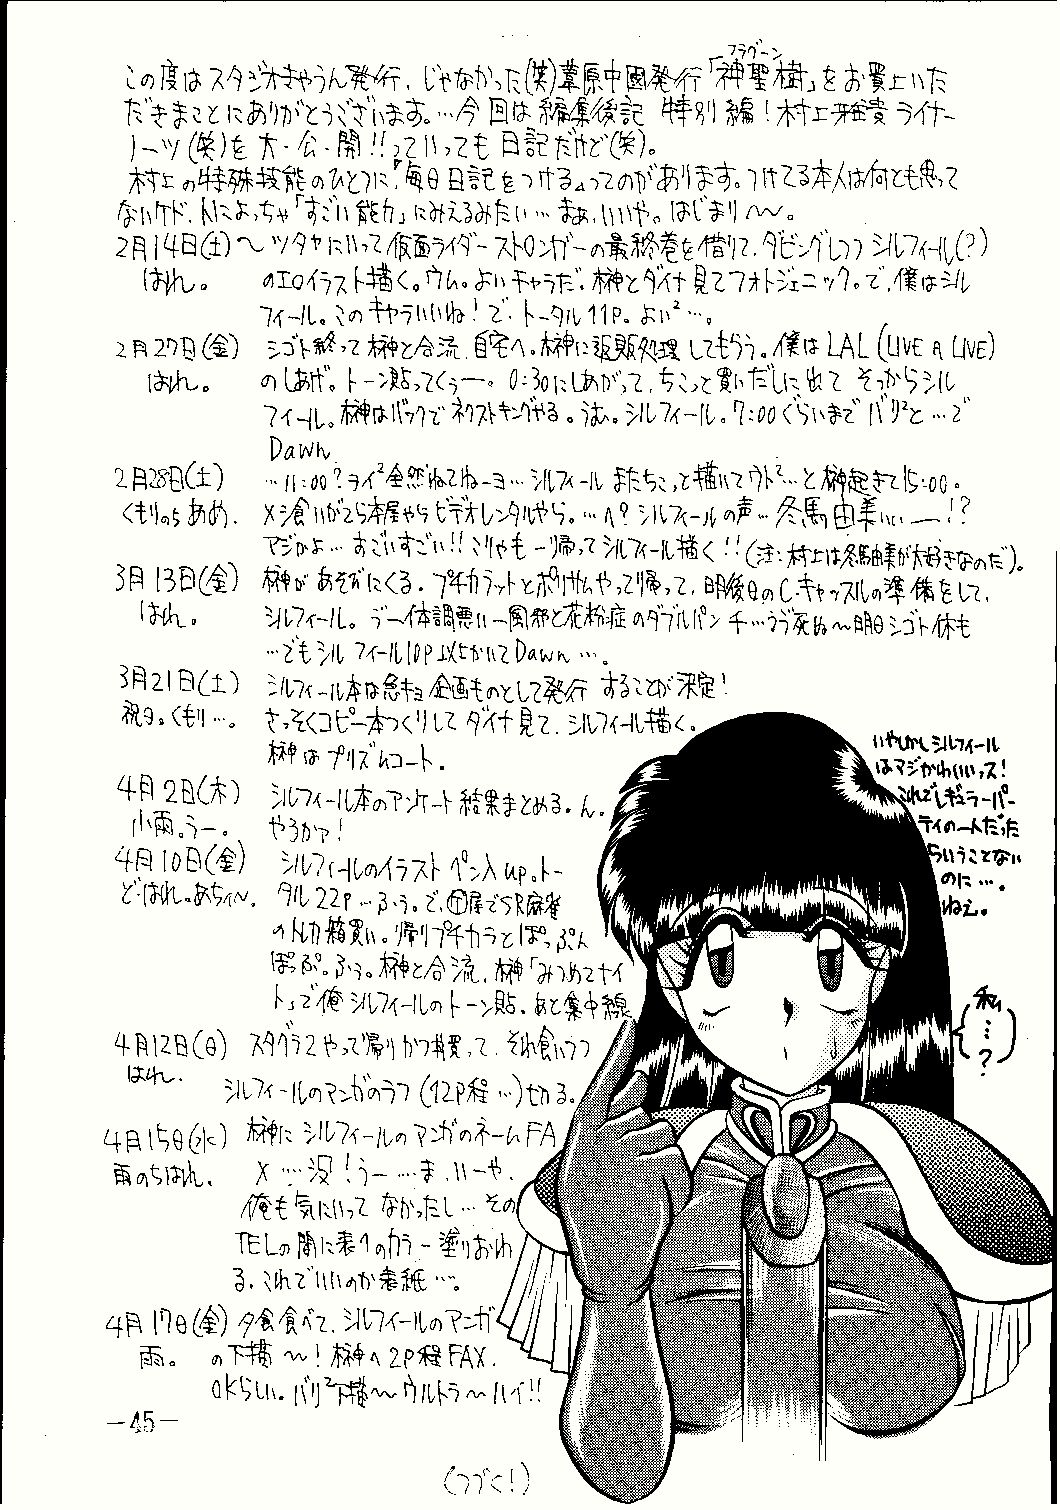 フラグーン
この度はスタジオきゃうん発行、じゃなかった(笑)葦原中國発行「神聖樹」をお買上いた
だきまことにありがとうございます。…今回は編集後記 特別編!村上雅貴ライナー
ノーツ(笑)を大・公・開!!っていっても日記だけど(笑)。
村上の特殊技能のひとつに、『毎日日記をつける』ってのがあります。つけてる本人は何とも思って
ないケド、人によっちゃ「すごい能力」にみえるみたい…まぁ、いいや。はじまり〜〜。
2月14日(土)〜 ツタヤにいって仮面ライダーストロンガーの最終巻を借りて、ダビングしつつシルフィール(?)
はれ。 のエロイラスト描く。ウム。よいキャラだ。榊とダイナ見てフォトジェニック。で、僕はシル
フィール。このキャラいいね!で、トータル11P。よい²…。
2月27日(金) シゴト終って榊と合流、自宅へ。榊に返販処理してもらう。僕はLAL(LIVE A LIVE)
はれ。 のしあげ。トーン貼ってくぅー。0:30にしあがって、ちこっと買いだしに出て そっからシル
フィール。榊はバックでネクストキングやる。うむ。シルフィール。7:00ぐらいまでバリ²と…で
Dawn
2月28日(土) …11:00?ライ²全然ねてねーヨ…シルフィールまたちこっと描いてウト²…と榊起きて15:00。
くもりのちあめ、 メシ食いがてら本屋やらビデオレンタルやら。…へ?シルフィールの声…冬馬由美ぃぃー!?
マジかよ…すごいすごい!!こりゃもー帰ってシルフィール描く!!(注:村上は冬馬由美が大好きなのだ)。
3月13日(金) 榊があそびにくる。プチカラットとポリサムやって帰って、明後日のC.キャッスルの準備をして、
はれ。 シルフィール。ゔー体調悪いー風邪と花粉症のダブルパンチ…ゔゔ死ぬ〜明日シゴト休も
…でもシルフィール10P以上かいてDawn…。
3月21日(土) シルフィール本は急キョ企画ものとして発行することが決定!
祝日。くもり…。 さっそくコピー本つくりしてダイナ見て、シルフィール描く。
榊はプリズムコート。
4月2日(木) シルフィール本のアンケート結果まとめる。ん。
小雨。うー。 やるかァ!
4月10日(金) シルフィールのイラストペン入up。トー
ど・はれ。あちィ〜、 タル22P…ふぅ。で、屋でSR麻雀
のトレカ箱買い。帰りプチカラとぽっぷん
ぽっぷ。ふぅ。榊と合流、榊「みつめてナイ
ト」で俺シルフィールのトーン貼、あと集中線、
4月12日(日) スタグラ2やって帰りがつ丼買って、それ食いつつ
はれ、 シルフィールのマンガのラフ(12P程…)切る。
4月15日(水) 榊にシルフィールのマンガのネームFA
雨のちはれ、 X…没!うー……ま、いーや、
俺も気にいってなかったし…その
TELの間に表4のカラー塗りおわ
る、これでいいのか表紙…。
4月17日(金) 夕食食べて、シルフィールのマンガ
雨。 の下描〜!榊へ2P程FAX、
OKらしい。バリ²下描〜ウルトラ〜ハイ!!
いやしかしシルフィール
はマジかわいいッス!
これでレギュラーパー
ティの一人だった
らいうことない
のに…。
ねぇ。
私
…
?
－45－
(つづく!)